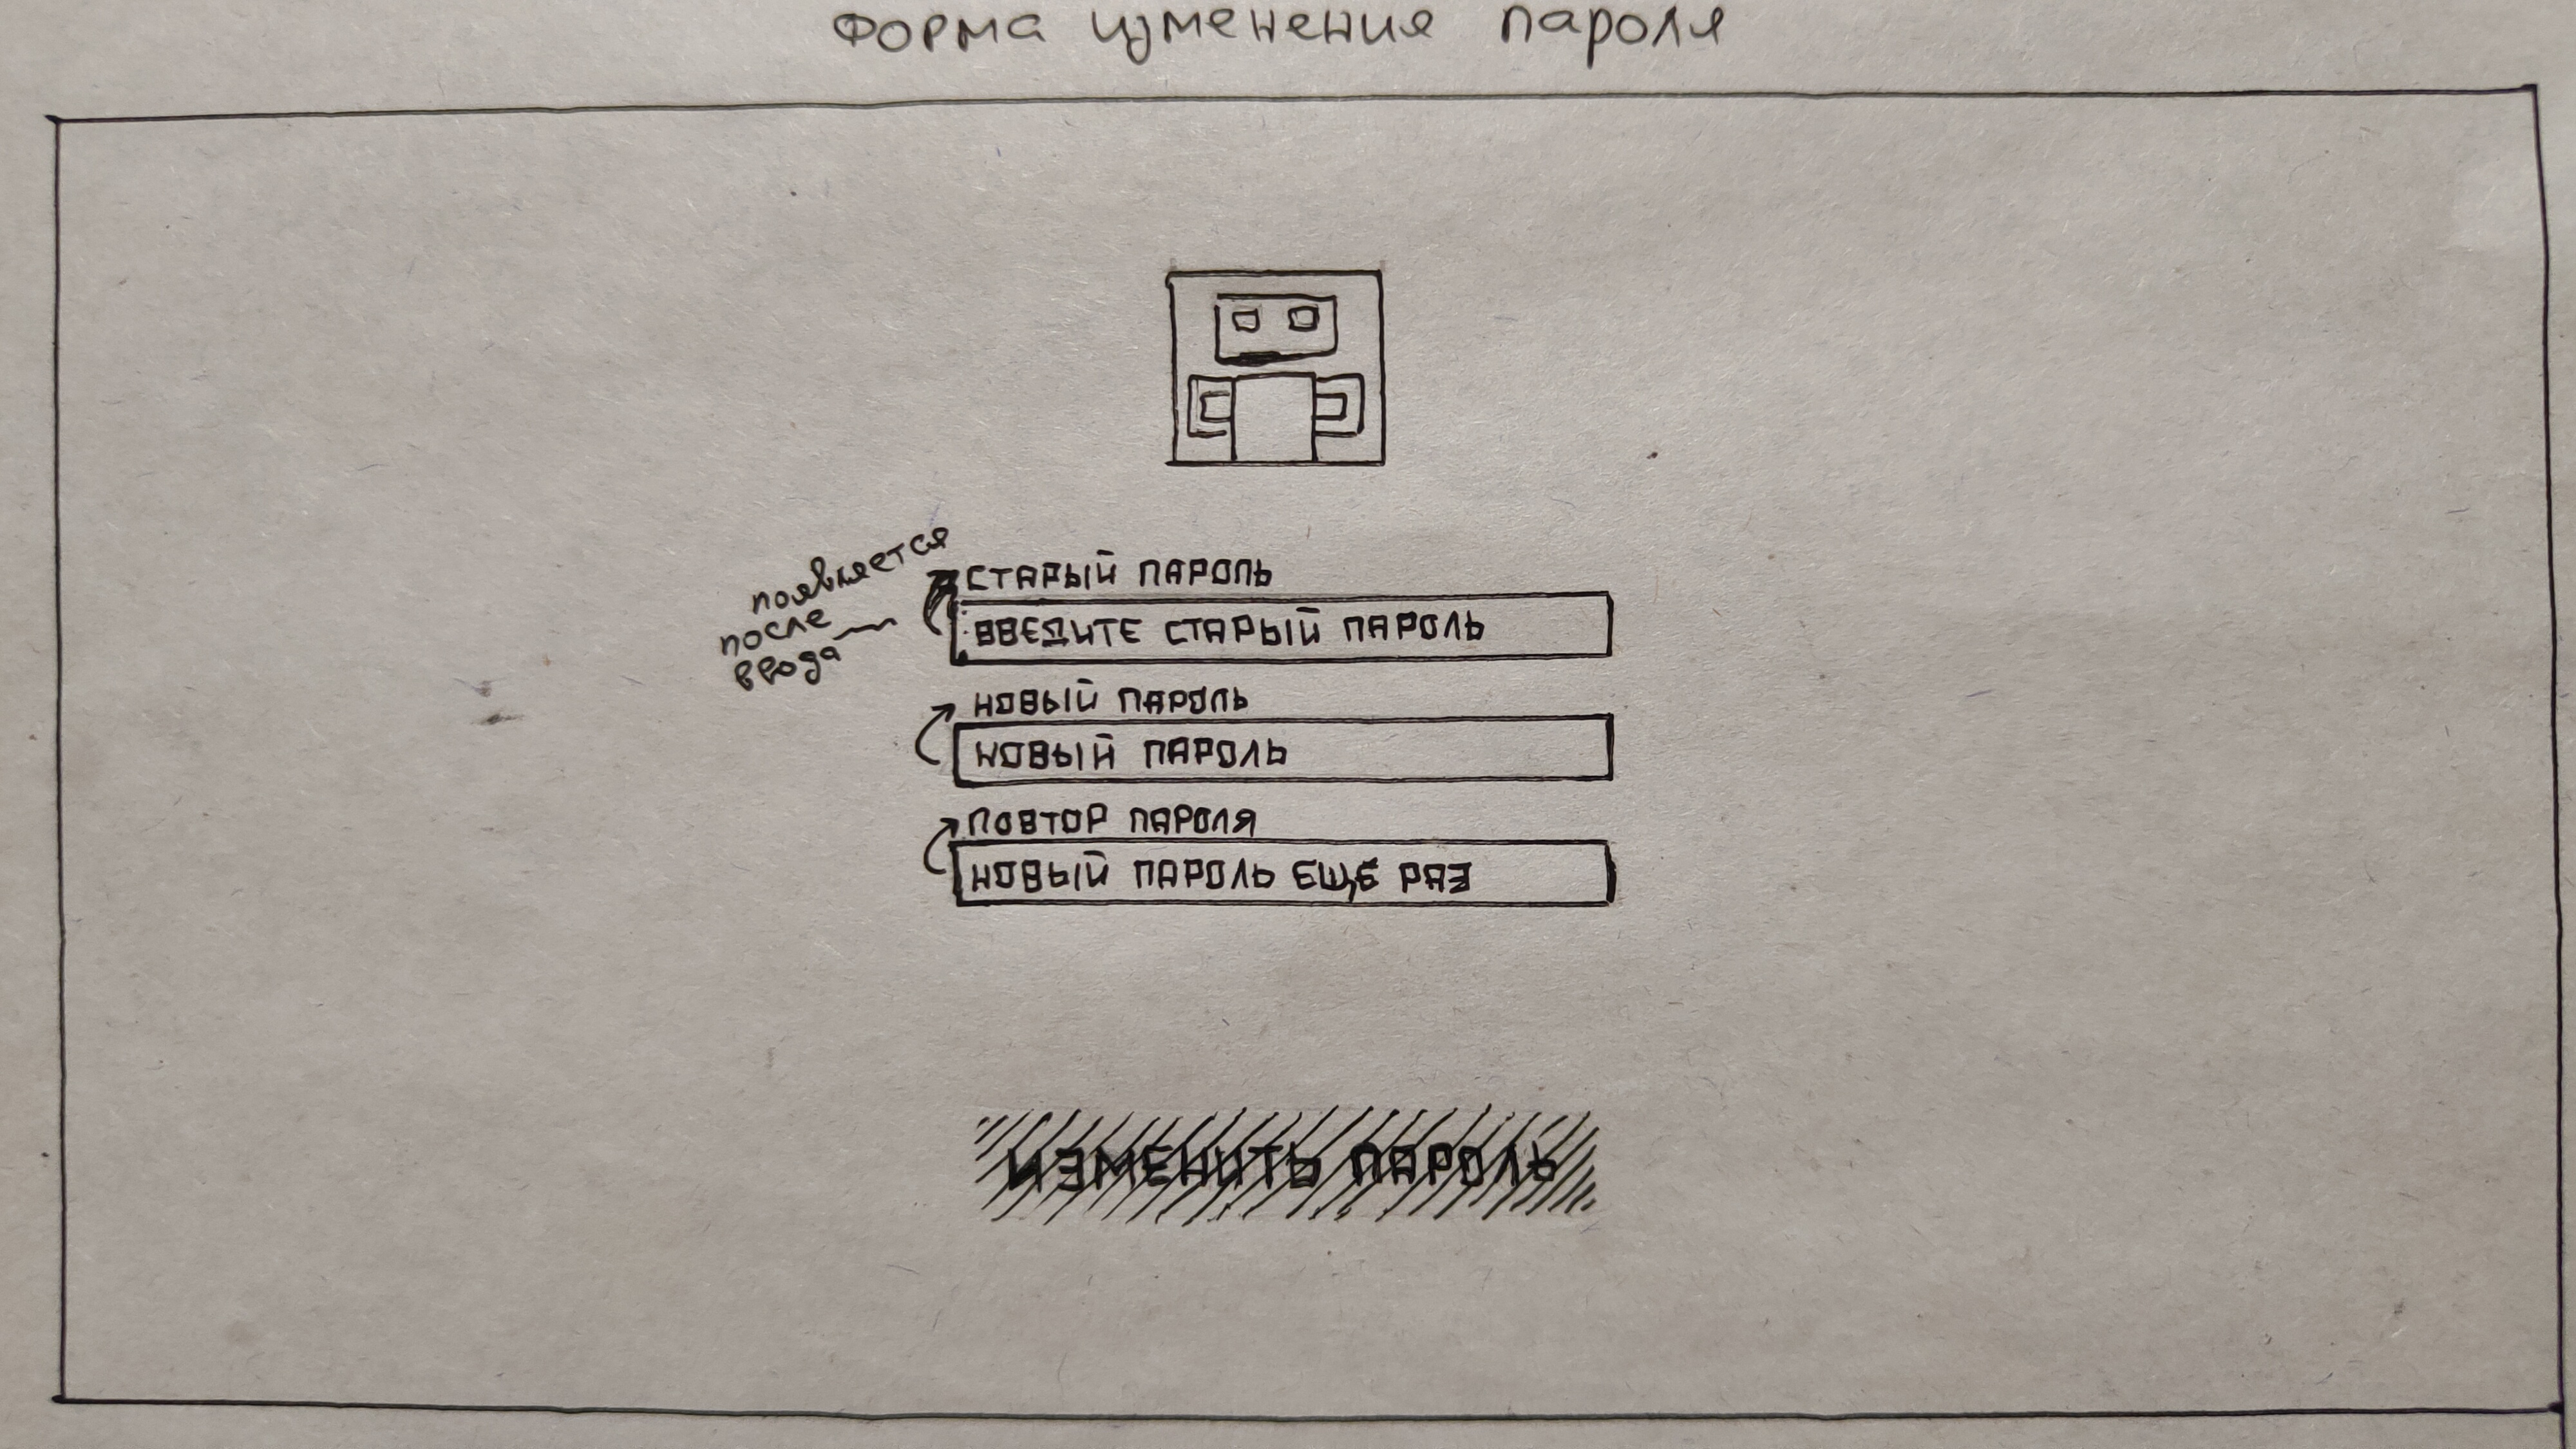 Форма изменения пароля
появляется
после
ввода
СТАРЫЙ ПАРОЛЬ
ВВЕДИТЕ СТАРЫЙ ПАРОЛЬ
НОВЫЙ ПАРОЛЬ
НОВЫЙ ПАРОЛЬ
ПОВТОР ПАРОЛЯ
НОВЫЙ ПАРОЛЬ ЕЩЁ РАЗ
ИЗМЕНИТЬ ПАРОЛЬ